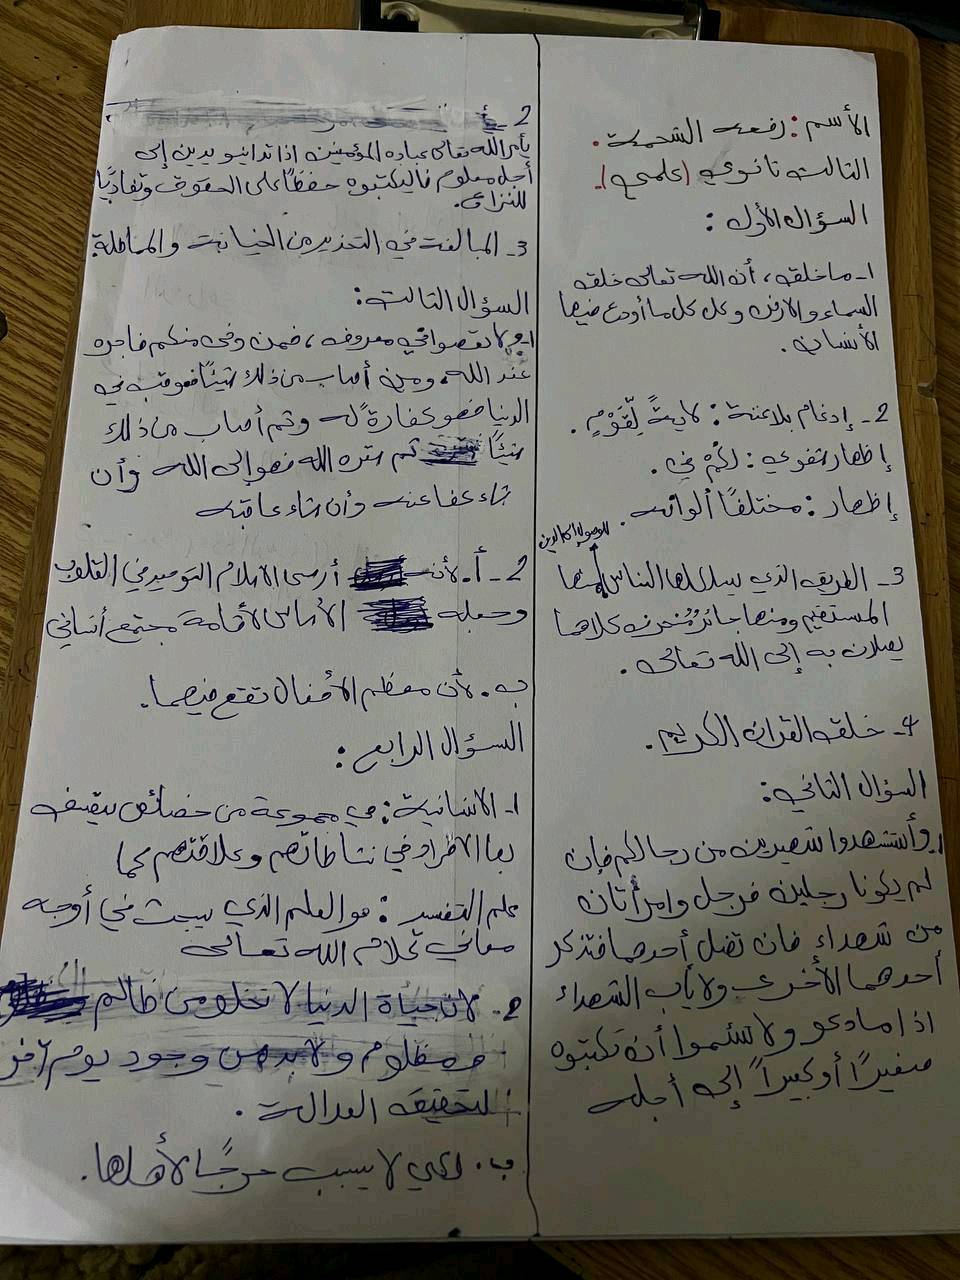 الأسم: رفعت الشحمة.
الثالث ثانوي (علمي).
السؤال الأول:
1- ما خلقه، أن الله تعالى خلقه
السماء والارض وعلى كل ما أودع فيها
الأنسان.
2- إدغام بلاغنة: لايةً لِّقَوْمٍ.
إظهار شفوي: لكمْ في.
إظهار: مختلفًا ألوانه.
للوصول
3- الطريق الذي يسلكها الناس منها
المستقيم ومنها جائز منحرف كلاهما
يصلان به إلى الله تعالى.
4- خلقه القران الكريم.
السؤال الثاني:
1. وأستشهدوا شهيدين من رجالكم فإن
لم يكونا رجلين فرجل وامرأتان
من شهداء فان تضل أحدهما فتذكر
أحدهما الأخرى ولا يأب الشهداء
اذا مادعو ولا تسئموا أن تكتبوه
صغيرًا أو كبيراً إلى أجله
2-
يأمر الله تعالى عباده المؤمنين اذا تداينو بدين إلى
أجل معلوم فاليكتبوه حفظًا على الحقوق وتفاديًا
للنزاع.
3- المبالغة في التحذير من الخيانة والمماطلة.
السؤال الثالث:
1- ولا تعصوا في معروف، فمن وفى منكم فاجره
عند الله، ومن أصاب من ذلك شيئًا فعوقب في
الدنيا فهو كفارةً له وثم أصاب من ذلك
شيئًا ثم ستره الله فهو إلى الله وأن
شاء عفا عنه وأن شاء عاقبه
2- أ. لأن أرسى الاسلام التوحيد في القلوب
وجعله الأساس لأقامة مجتمع أنساني
ب. لأن معظم الأفعال تقع فيهما.
السؤال الرابع:
1- الانسانية: هي مجموعة من خصائص يتصف
بها الأفراد في نشاطاتهم وعلاقتهم
علم التفسير: هو العلم الذي يبحث في أوجه
معاني كلام الله تعالى
2- لان حياة الدنيا لا تخلو من ظالم
و مظلوم ولابد من وجود يوم آخر
لتحقيق العدالة.
ب. لكي لا يسبب حرجًا لأهلها.